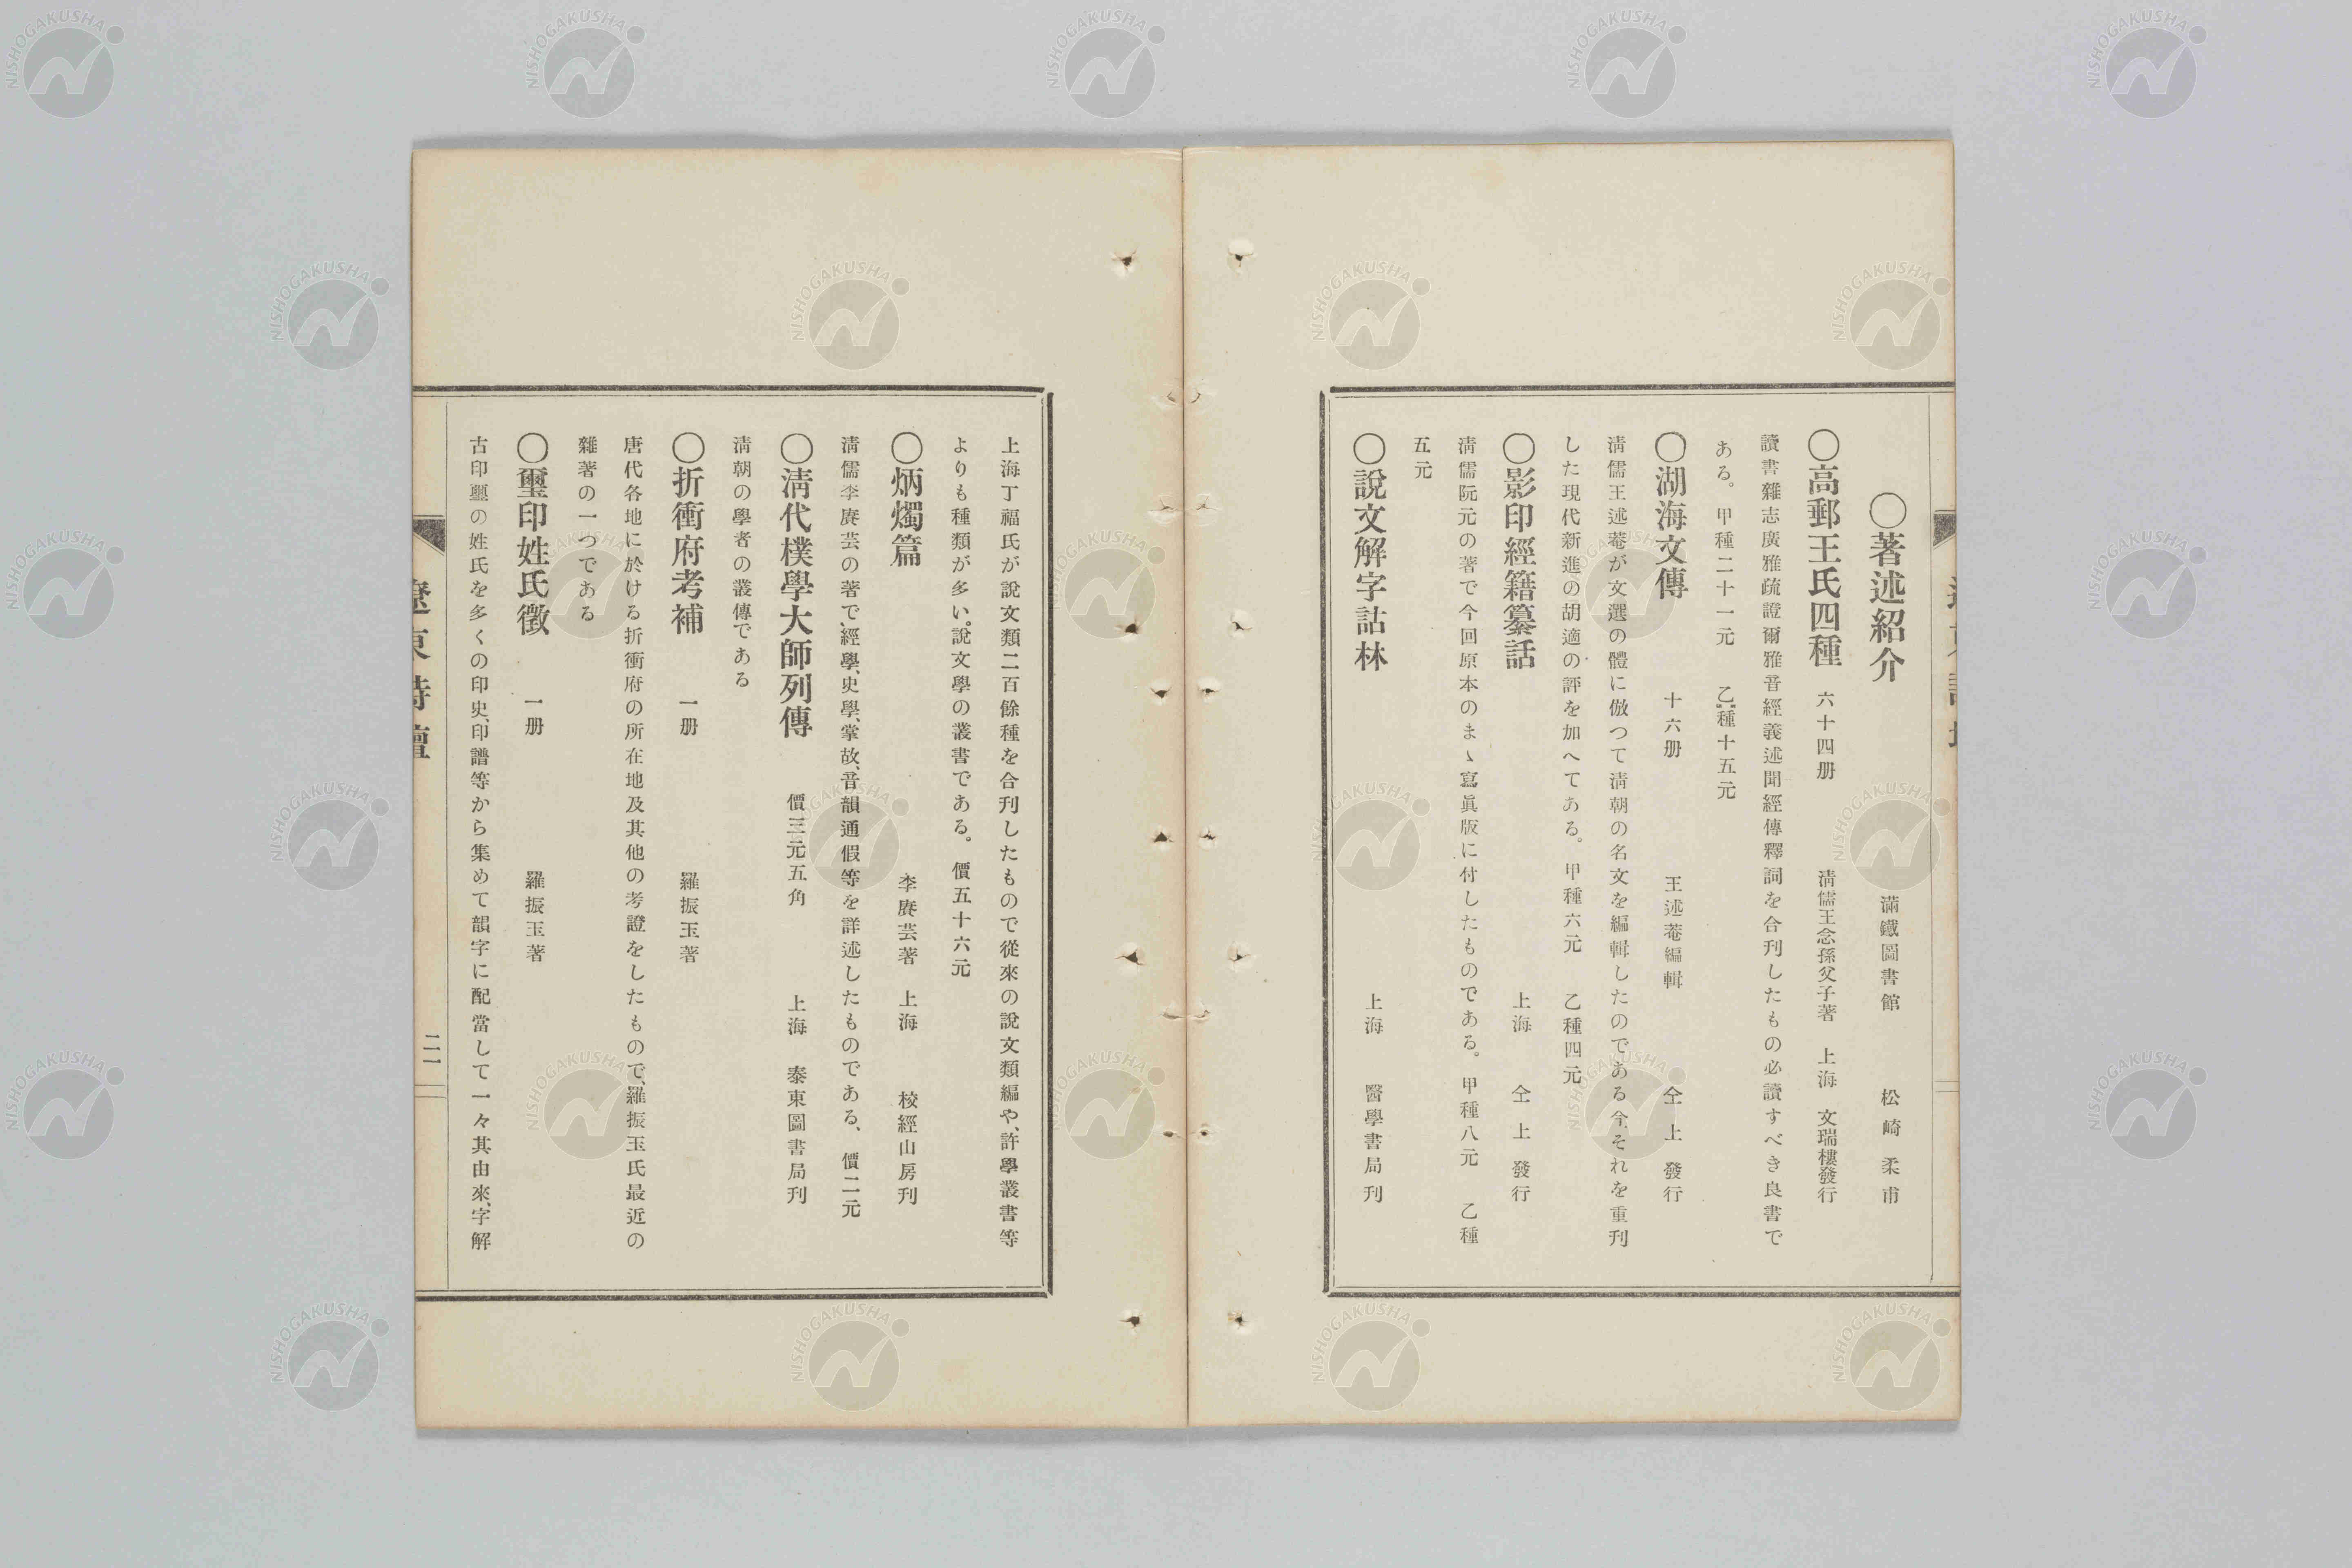 ○著述紹介　滿鐵圖書館　松崎柔甫
○高郵王氏四種　六十四册　淸儒王念孫父子著　上海　文瑞樓發行
讀書雜志廣雅疏證爾雅音經義述聞經傳釋詞を合刊したもの必讀すべき良書で
ある。甲種二十一元　乙種十五元
○湖海文傳　十六册　王述菴編輯　仝上發行
淸儒王述菴が文選の體に倣つて淸朝の名文を編輯したのである今それを重刊
した現代新進の胡適の評を加へてある。甲種六元　乙種四元
○影印經籍纂話　上海　仝上發行
淸儒阮元の著で今回原本のまゝ寫眞版に付したものである。甲種八元　乙種
五元
○說文解字詁林　上海　醫學書局刊
上海丁福氏が說文類二百餘種を合刊したもので從來の說文類編や、許學叢書等
よりも種類が多い。說文學の叢書である。價五十六元
○炳燭篇　李賡芸著　上海　校經山房刊
淸儒李賡芸の著で、經學、史學、掌故、音韻通假等を詳述したものである、價二元
○淸代樸學大師列傳　價三元五角　上海　泰東圖書局刊
淸朝の學者の叢傳である
○折衝府考補　一册　羅振玉著
唐代各地に於ける折衝府の所在地及其他の考證をしたもので、羅振玉氏最近の
雜著の一つである
○璽印姓氏徵　一册　羅振玉著
古印璽の姓氏を多くの印史、印譜等から集めて韻字に配當して一々其由來、字解
遼東詩壇
二一
NISHOGAKUSHA